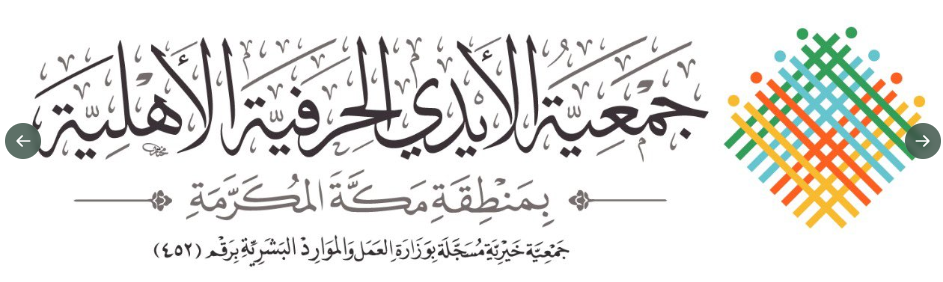 جمعية الأيدي الحرفية الأهلية
بمنطقة مكة المكرمة
جمعية خيرية مسجلة بوزارة العمل والموارد البشرية برقم (٤٥٢)